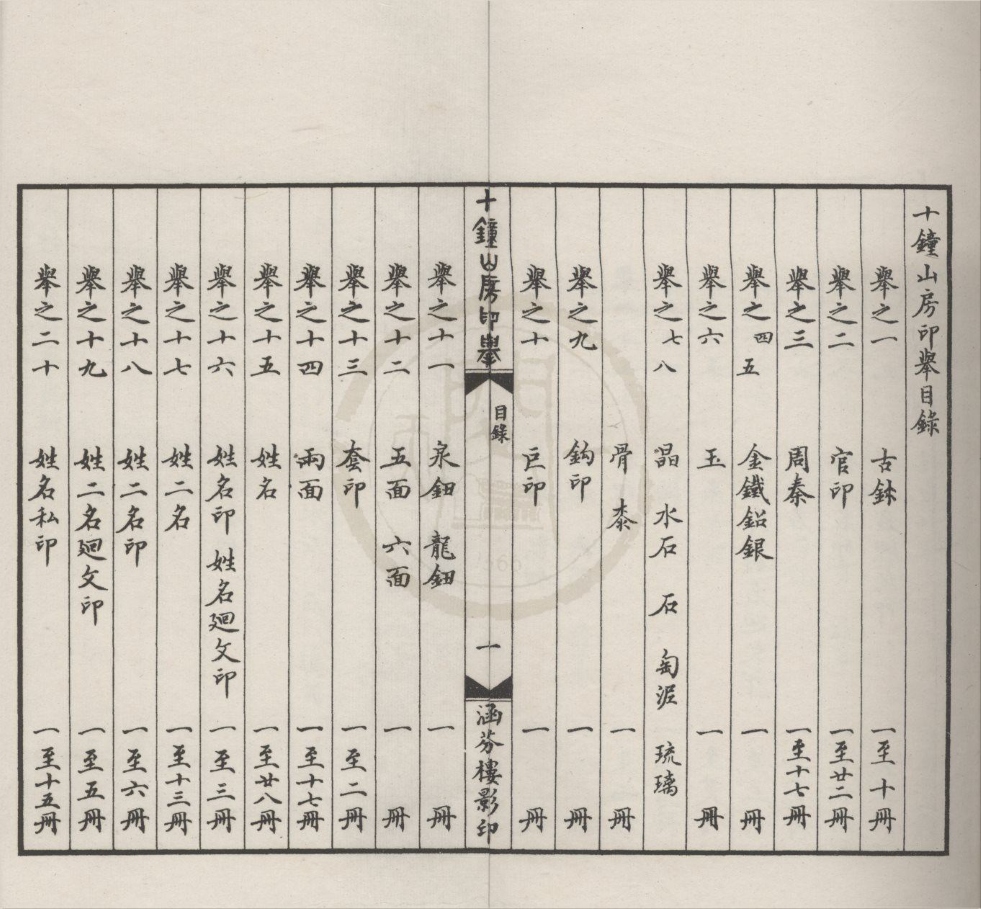 十鐘山房印舉目錄
舉之一 古鉨 一至十冊
舉之二 官印 一至廿二冊
舉之三 周秦 一至十七冊
舉之四 五 金鐵鉛銀 一 冊
舉之六 玉 一 冊
舉之七 八 晶 水石 石 匋泥 琉璃
骨 桼 一 冊
舉之九 鉤印 一 冊
舉之十 巨印 一 冊
十鐘山房印舉 目錄 一 涵芬樓影印
舉之十一 泉鈕 龍鈕 一 冊
舉之十二 五面 六面 一 冊
舉之十三 套印 一至二冊
舉之十四 兩面 一至十七冊
舉之十五 姓名 一至廿八冊
舉之十六 姓名印 姓名廻文印 一至三冊
舉之十七 姓二名 一至十三冊
舉之十八 姓二名印 一至六冊
舉之十九 姓二名廻文印 一至五冊
舉之二十 姓名私印 一至十五冊